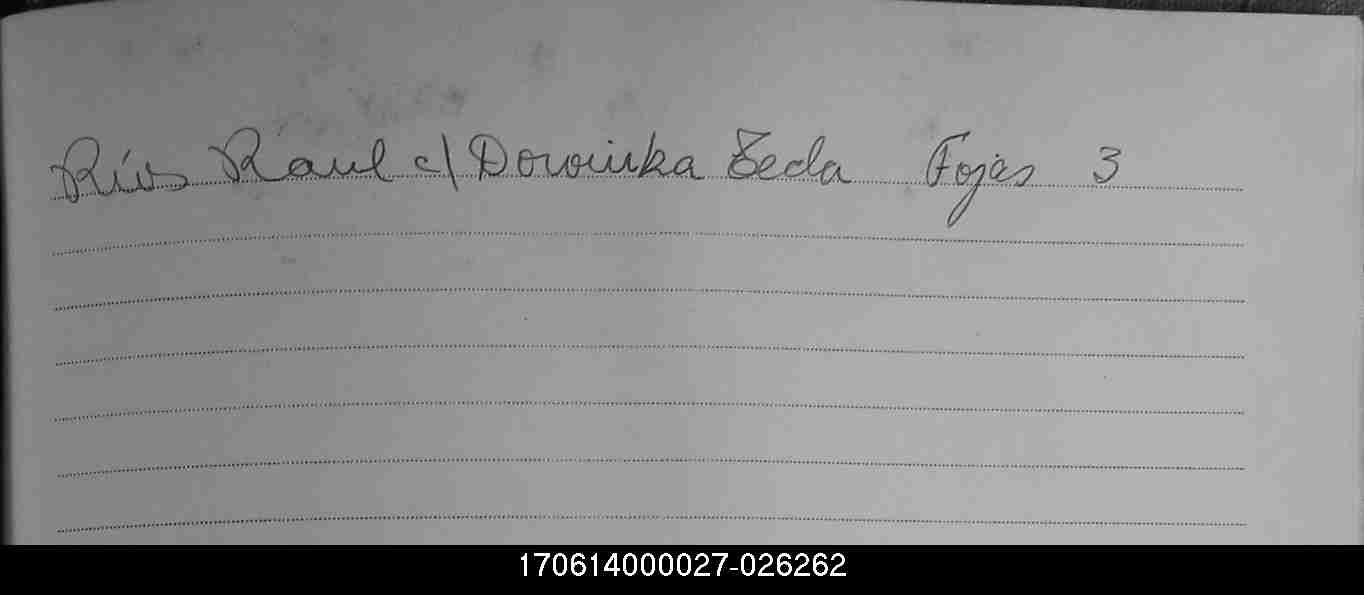 Ríos Raul c/ Dowinka Zeda Fojas 3
170614000027-026262